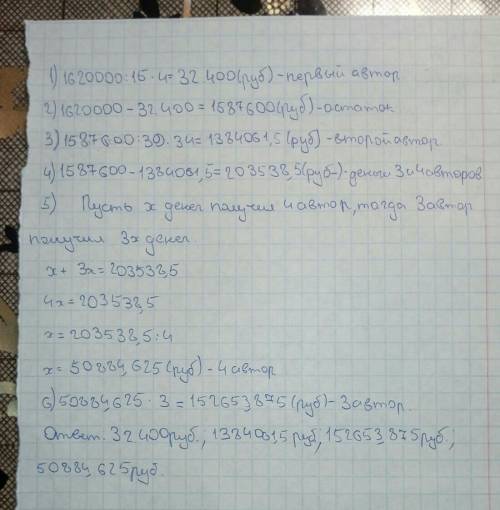 1) 1620000:15·4=32400(руб)-первый автор
2) 1620000-32400=1587600(руб)-остаток
3) 1587600:39·34=1384061,5(руб)-второй автор
4) 1587600-1384061,5=203538,5(руб-)-деньги 3и4авторов
5) Пусть х денег получил 4 автор, тогда 3автор
получил 3х денег.
х+3х=203538,5
4х=203538,5
х=203538,5:4
х=50884,625(руб)-4 автор
6) 50884,625·3=152653,875(руб)-3автор.
Ответ. 32400руб., 1384061,5 руб, 152653,875руб.,
50884,625руб.